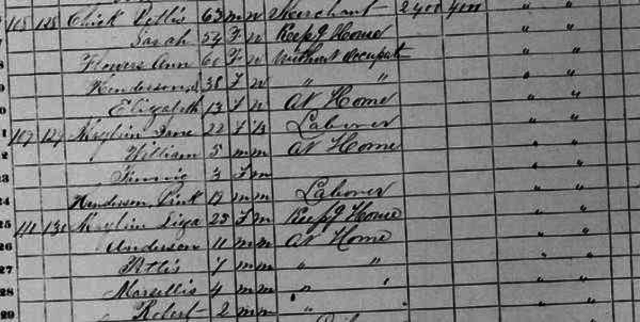 105 128 Chick Pettis 63 m w Merchant 2400 400 " "
Sarah 54 F w Keepg House " "
Flowers Ann 60 F w Without Occupat " "
Henderson 38 F w " " " "
Elizabeth 13 F w At Home " "
107 129 Jane 22 F B Laborer " "
William 5 m m At Home " "
3 F m " "
24 Henderson m m Laborer " "
25 111 130 25 F m Keepg House " "
26 Anderson 11 m m At Home " "
27 Pettis 7 m m " " " "
28 Marsellis 4 m m " " " "
29 Robert 2 m m " " "